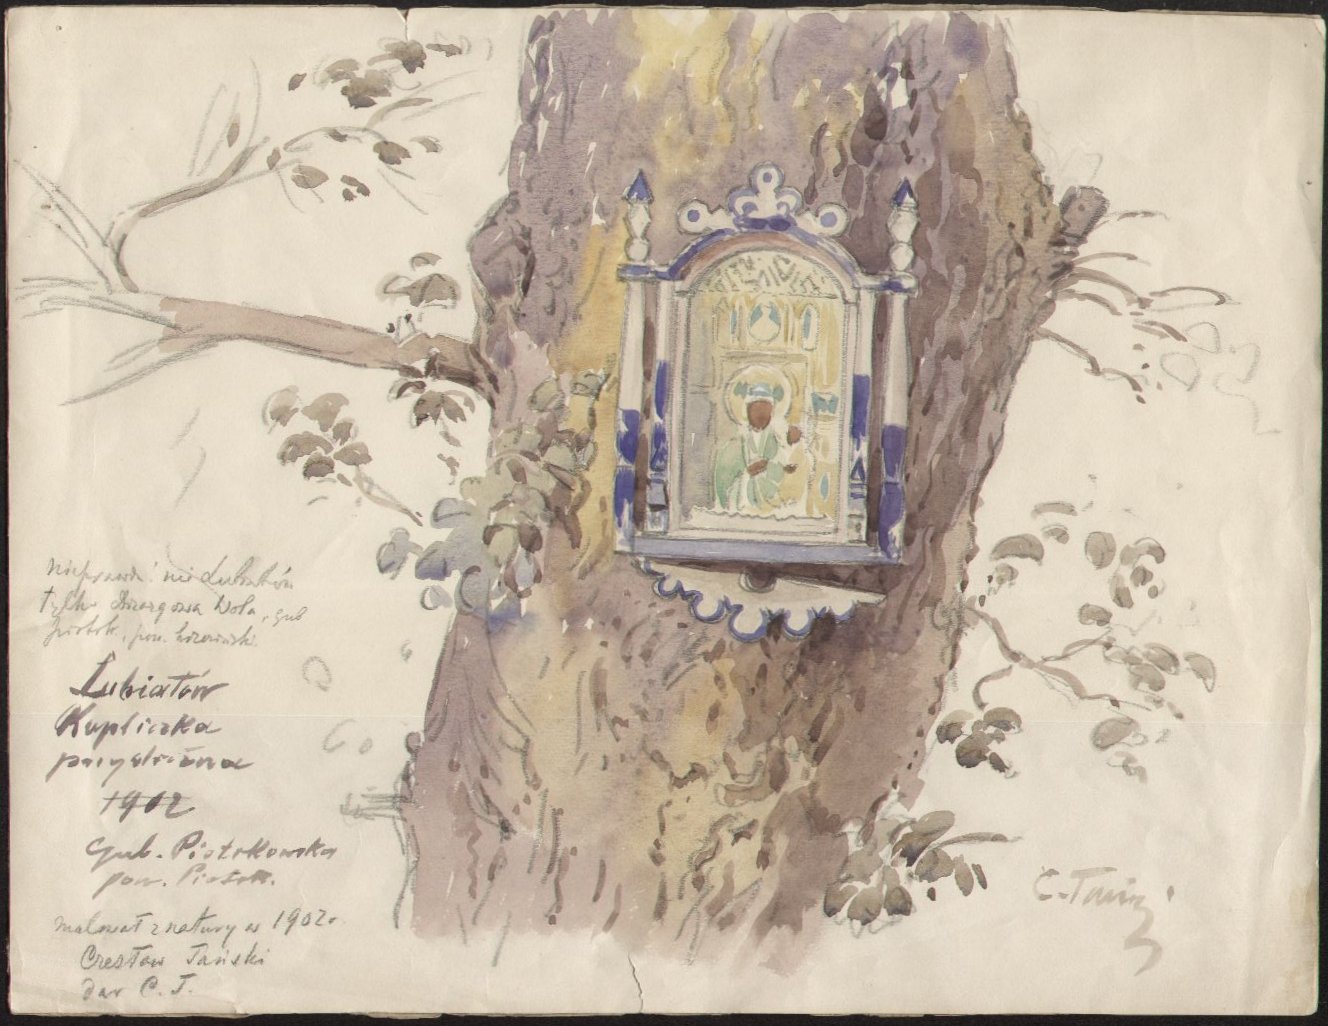 Nieprawda! nie Lubiatów
tylko Wola, gub
Piotrk., pow.
Lubiatów
Kapliczka
przydrożna
1902
Gub. Piotrkowska
pow. Piotrk.
malował z natury w 1902 r.
Czesław Tański
dar C. T.
C. Tański